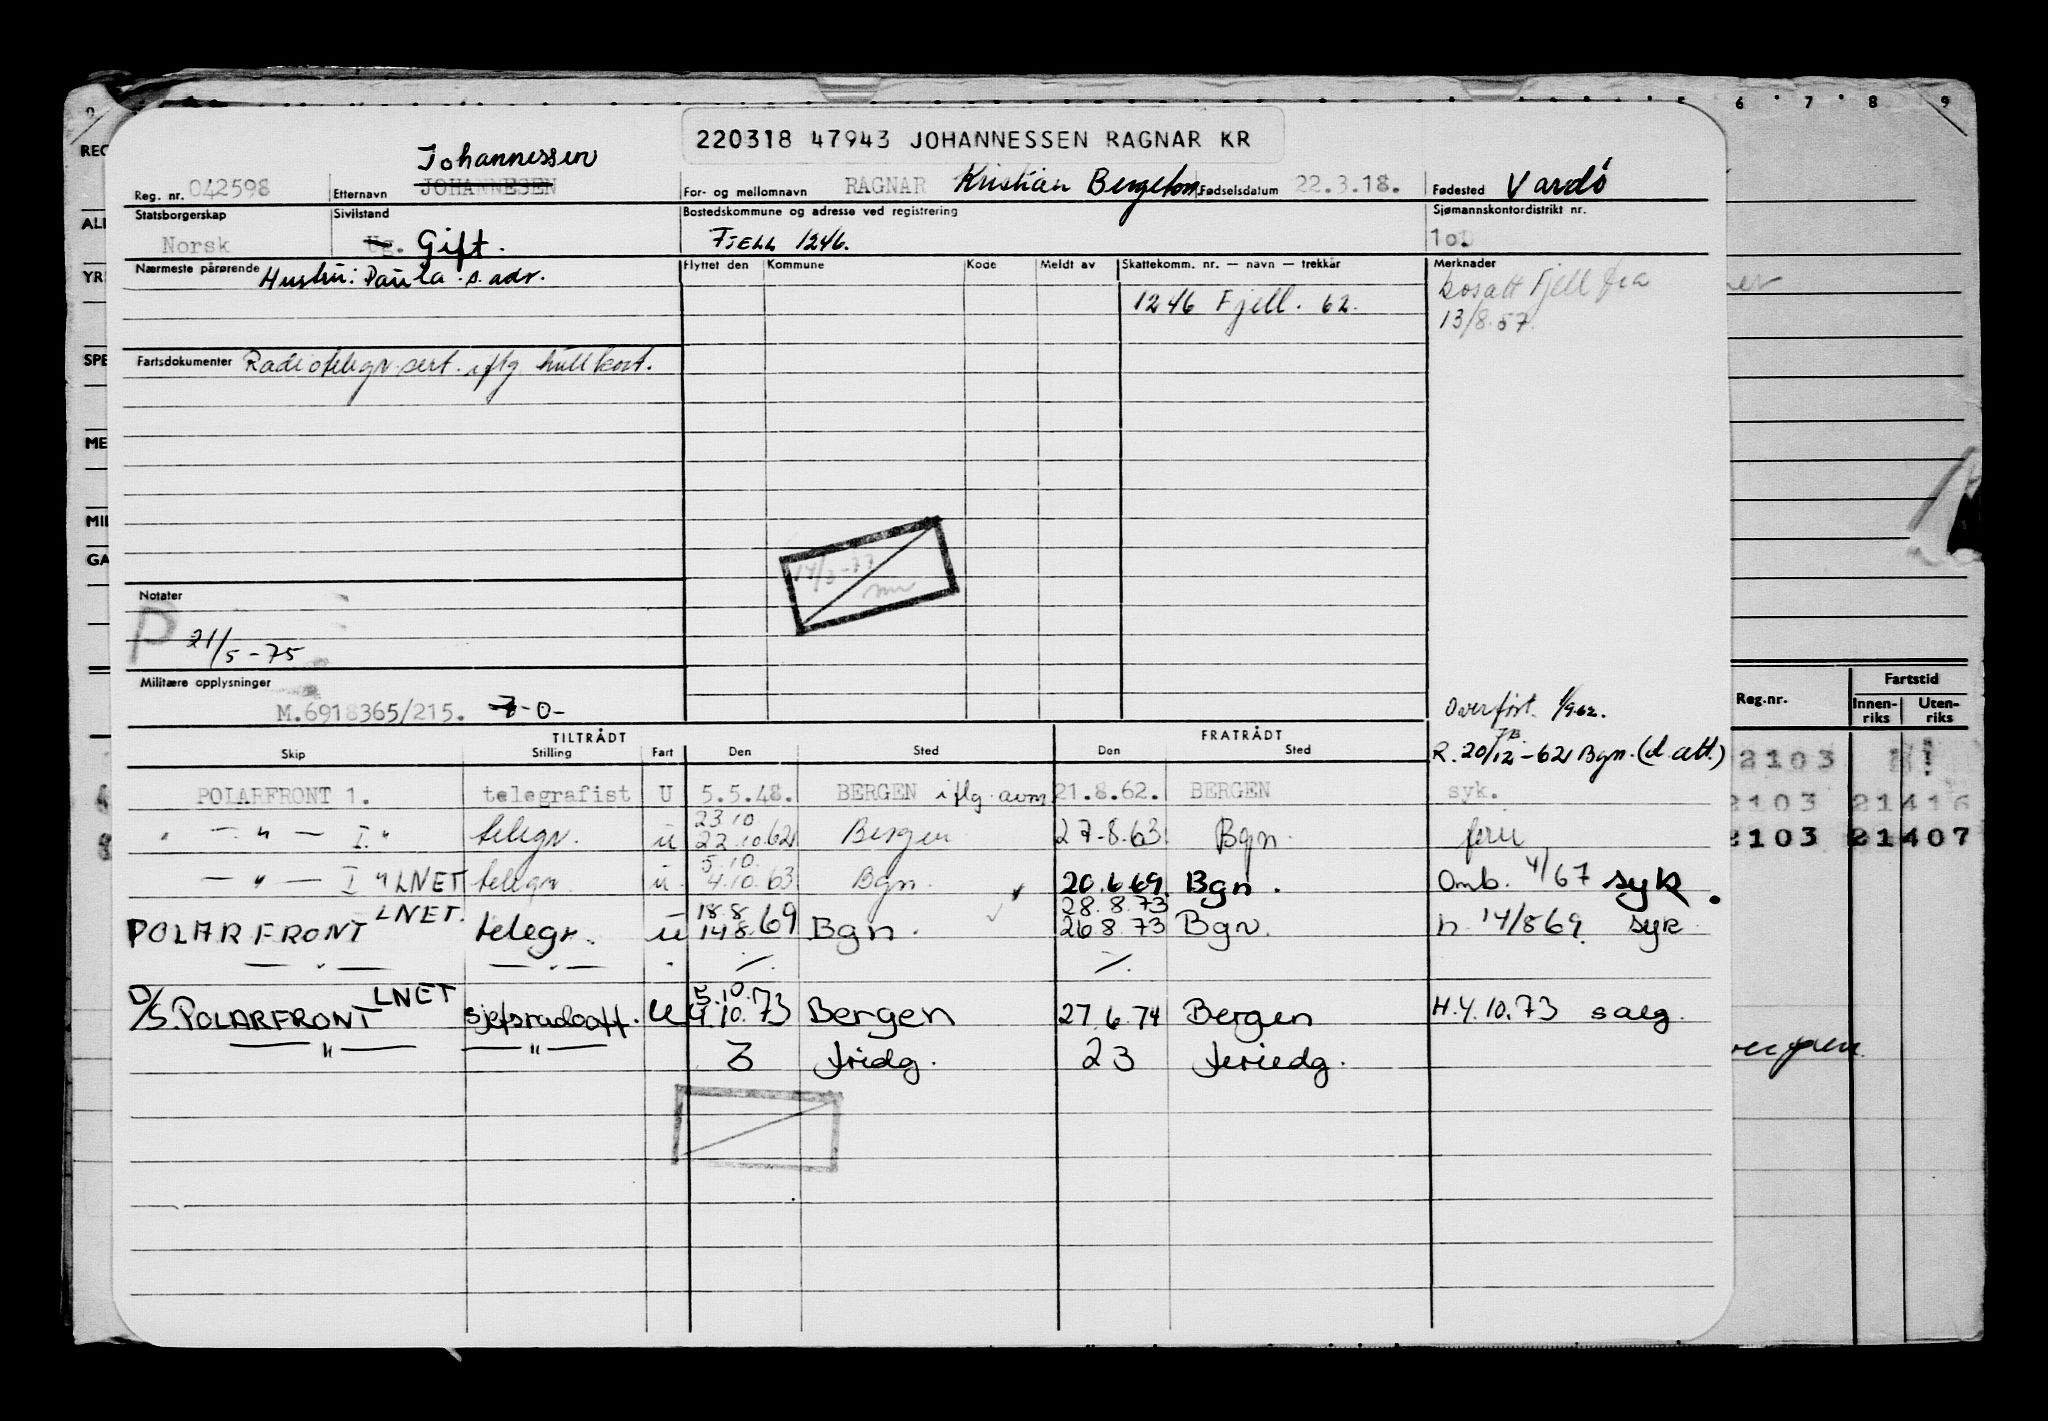 6 7 8 9
220318 47943 JOHANNESSEN RAGNAR KR
Johannessen
REG
Reg. nr. 042598 Etternavn JOHANNESEN For- og mellomnavn RAGNAR Kristian Fødselsdatum 22.3.18. Fødested Vardø
Statsborgerskap Sivilstand Bostedskommune og adresse ved registrering Sjømannskontordistrikt nr.
Norsk Ug. Gift. FJELL 1246. 1o
Nærmeste pårørende Hustru: Paula s. adr. Flyttet den Kommune Kode Meldt av Skattekomm. nr. — navn — trekkår Merknader
1246 Fjell. 62. bosatt Fjell fra
13/8.57.
Fartsdokumenter Radiotelegr.sert. iflg hullkort.
14/3-77
Notater
P 21/5-75
Militære opplysninger
M.6918365/215. -0-
Overført 1/9.62.
TILTRÅDT FRATRÅDT
Skip Stilling Fart Den Sted Den Sted R. 20/12-62 Bgn. (d. att.)
POLARFRONT 1. telegrafist U 5.5.48. BERGEN iflg. avm 21.8.62. BERGEN syk.
23 10.
" — " — I. " telegr. u 22.10.62 Bergen 27.8.63 Bgn. ferie
5.10.
— " — I " LNET telegr. u. 4.10.63 Bgn. 20.6.69. Bgn. Omb. 4/67 syk.
LNET. 18.8 28.8.73
POLARFRONT telegr. u 14.8.69 Bgn. 26.8.73 Bgn. h. 14/8 69. syk
— " — — " — " ⁒ ⁒
LNET 5.10.
D/S. POLARFRONT sjefsradooff. U 4.10.73 Bergen 27.6.74 Bergen H.4.10.73 salg.
— " — — " — 3 fridg. 23 feriedg.
ALI
YR
SPE
ME
MIL
GA
Reg.nr. Fartstid
Innen-riks Uten-riks
2103
2103 21416
2103 21407